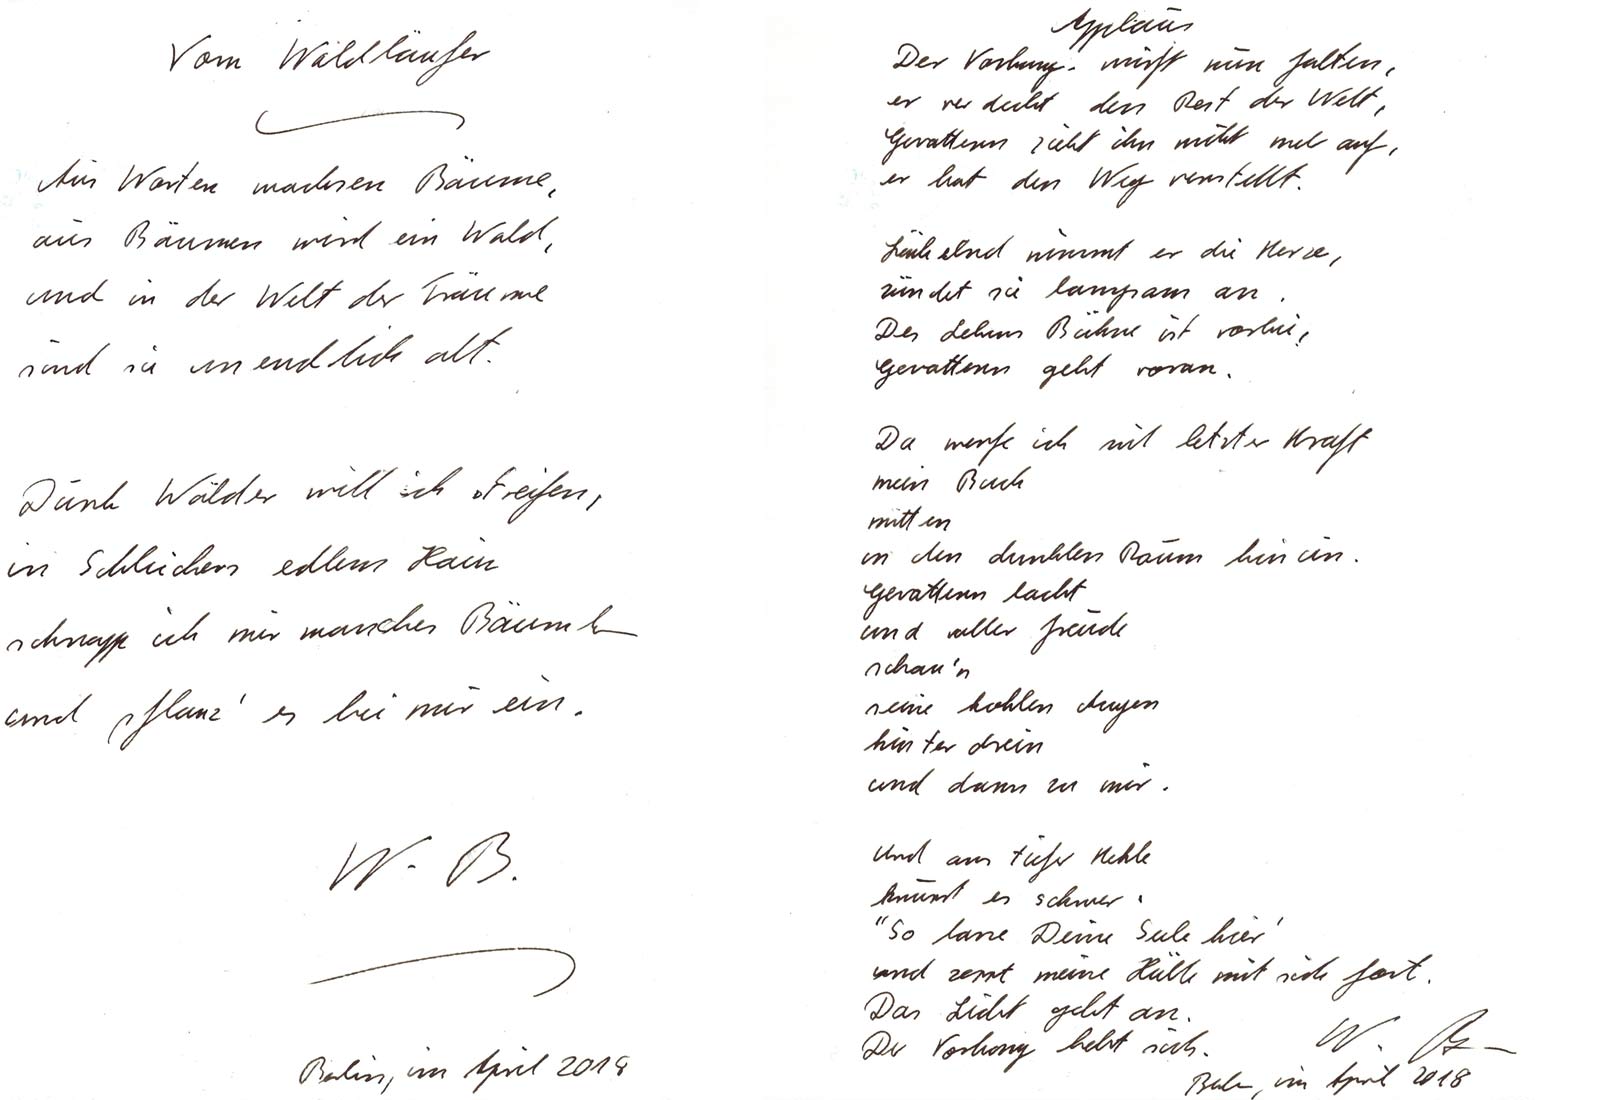 Vom Waldläufer
Aus Worten wachsen Bäume,
aus Bäumen wird ein Wald,
und in der Welt der Träume
sind sie unendlich alt.
Durch Wälder will ich streifen,
in Schleichers edlem Hain
schnapp ich mir manches Bäumlein
und pflanz' es bei mir ein.
W. B.
Berlin, im April 2018
Applaus
Der Vorhang wirft nun Falten,
er verdeckt den Rest der Welt,
Gevattern zieht ihn nicht mehr auf,
er hat den Weg verstellt.
Lächelnd nimmt er die Kerze,
zündet sie langsam an.
Des Lebens Bühne ist vorbei,
Gevattern geht voran.
Da werfe ich mit letzter Kraft
mein Buch
mitten
in den dunklen Raum hinein.
Gevattern lacht
und voller Freude
schau'n
seine hohlen Augen
hinterdrein
und dann zu mir.
Und aus tiefer Kehle
knurrt es schwer:
"So lasse Deine Seele hier'
und zerrt meine Hülle mit sich fort.
Das Licht geht an.
Der Vorhang hebt sich.
W. B
Berlin, im April 2018